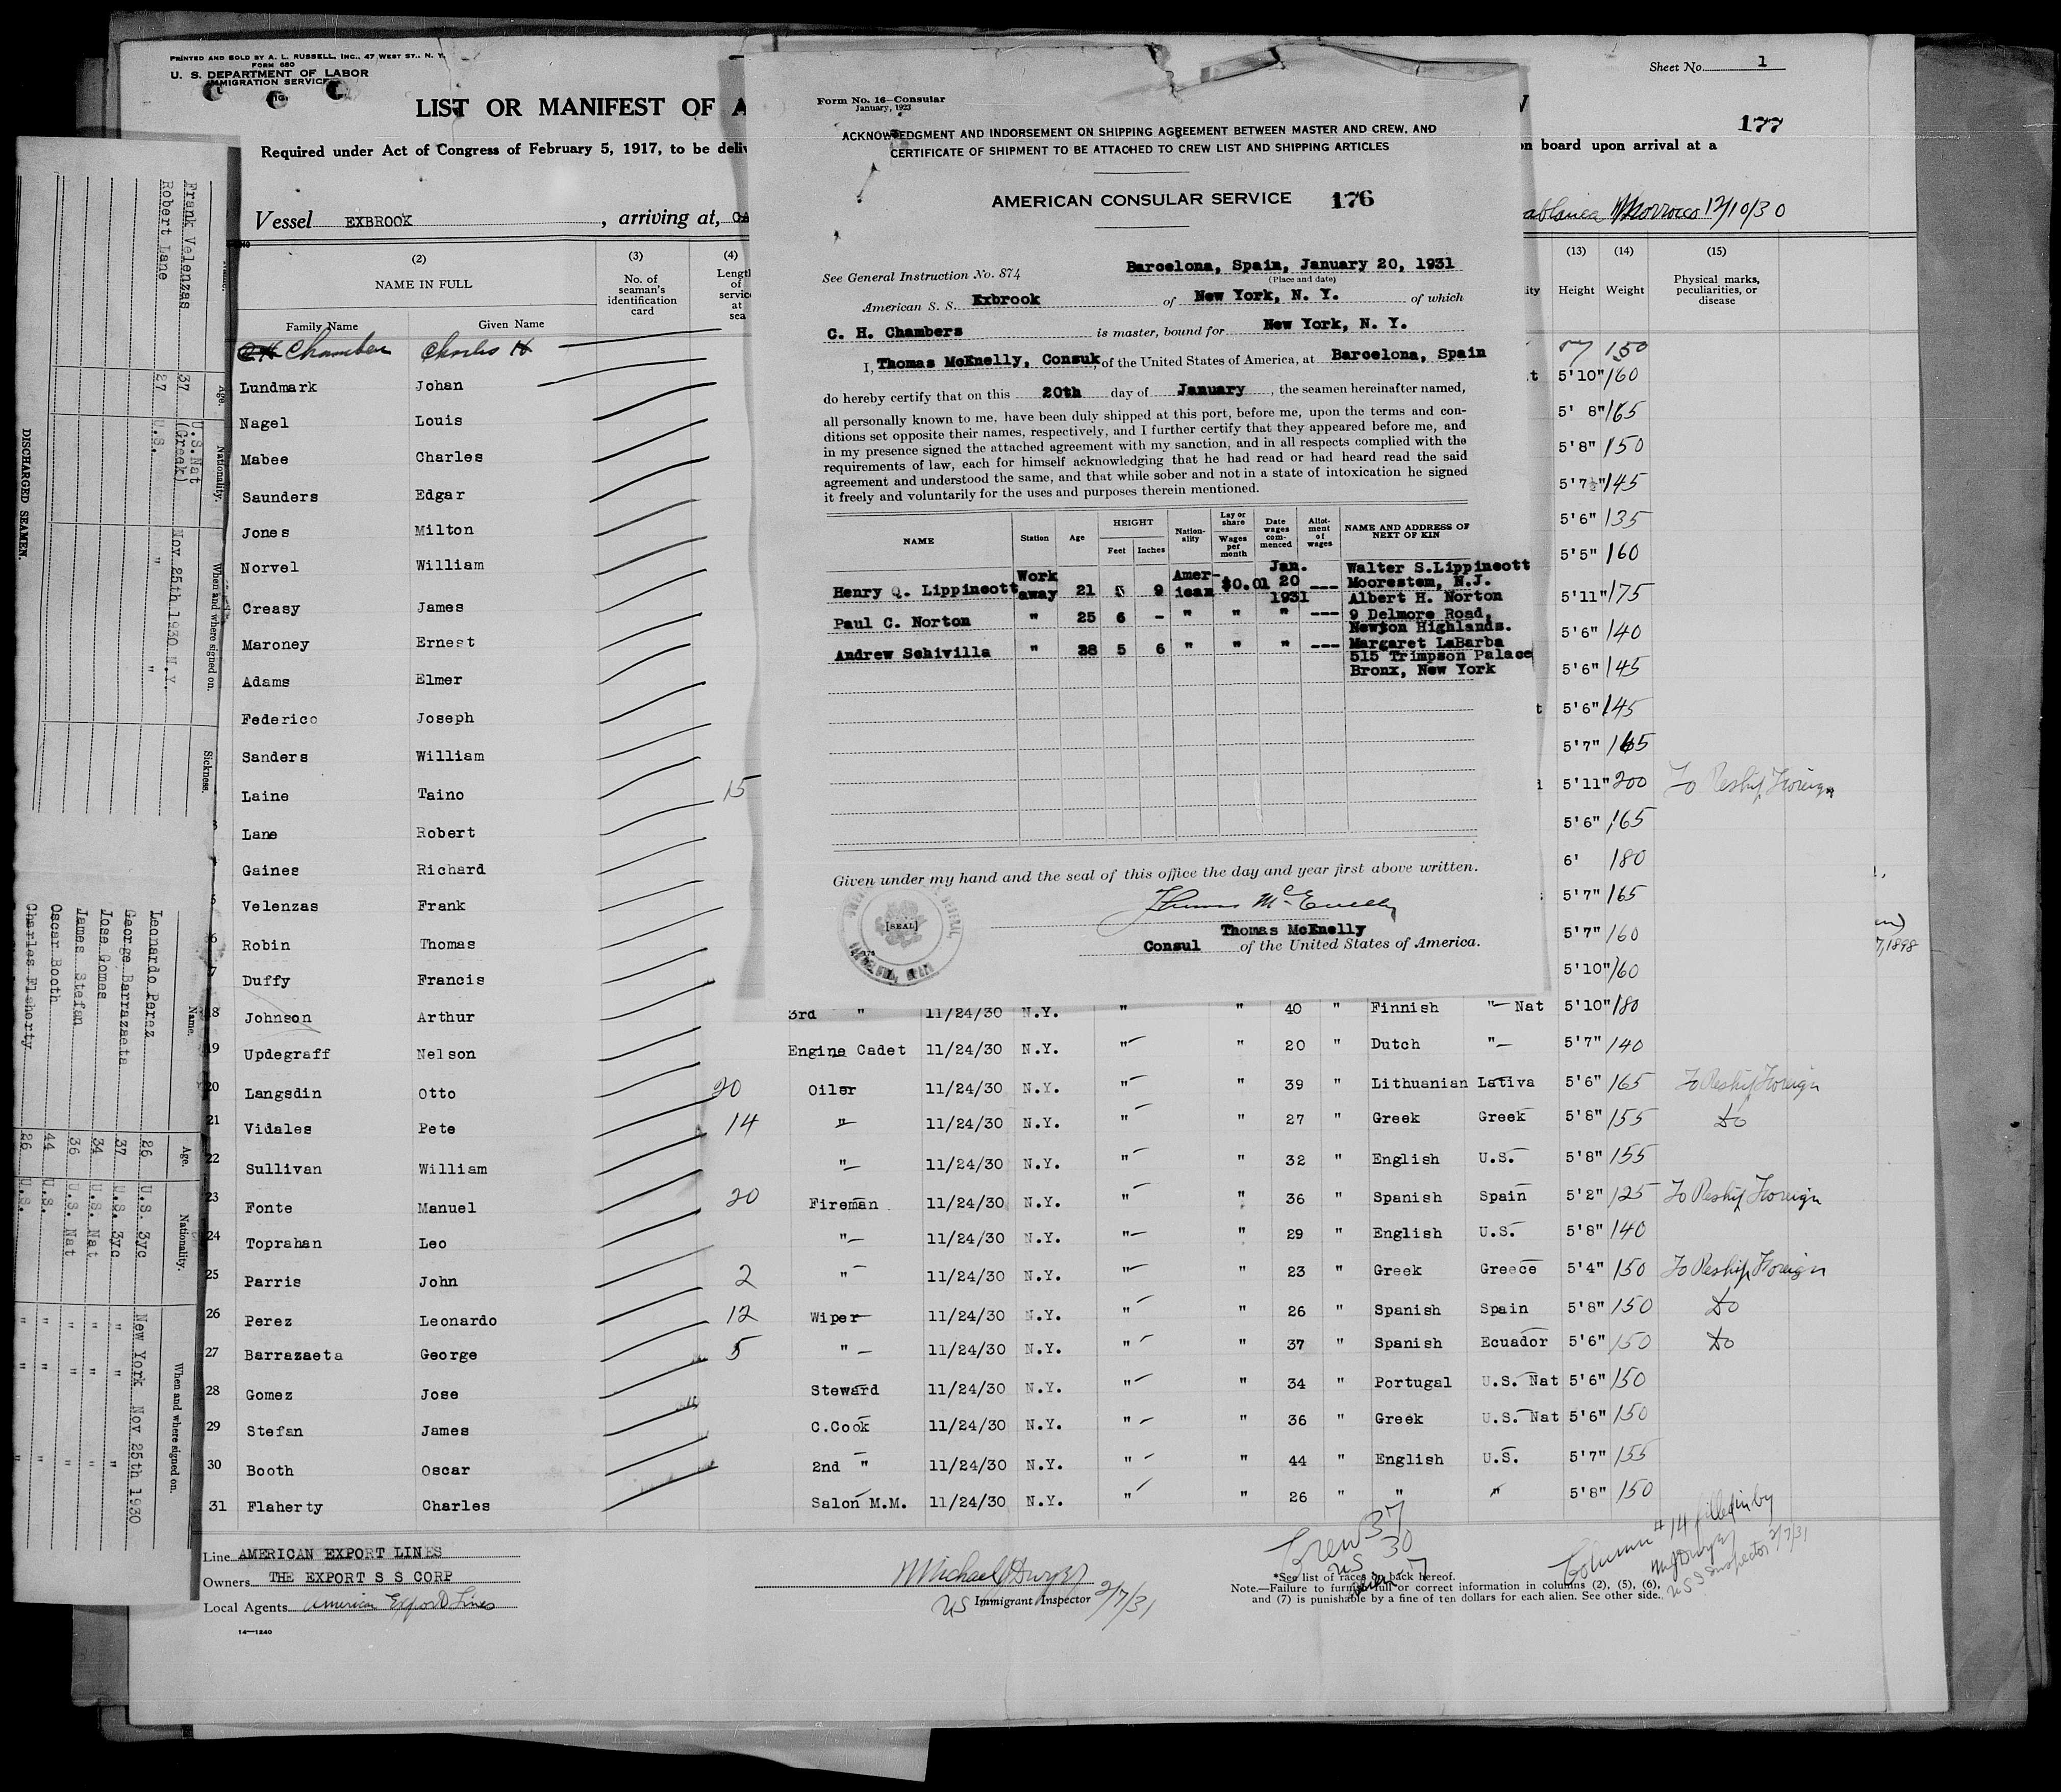 PRINTED AND SOLD BY A. L. RUSSELL, INC., 47 WEST ST., N. Y.
FORM 680
U. S. DEPARTMENT OF LABOR
IMMIGRATION SERVICE
Sheet No. 1
LIST OR MANIFEST OF A
177
Required under Act of Congress of February 5, 1917, to be deliv
on board upon arrival at a
Vessel EXBROOK , arriving at,
ablanca Morrocco 12/10/30
(2) (3) (4) (13) (14) (15)
NAME IN FULL No. of seaman's identification card Length of service at sea Height Weight Physical marks, peculiarities, or disease
Family Name Given Name
Chamber Charles H 150
Lundmark Johan 5'10" 160
Nagel Louis 5' 8" 165
Mabee Charles 5'8" 150
Saunders Edgar 5'7½" 145
Jones Milton 5'6" 135
Norvel William 5'5" 160
Creasy James 5'11" 175
Maroney Ernest 5'6" 140
Adams Elmer 5'6" 145
Federico Joseph 5'6" 145
Sanders William 5'7" 165
Laine Taino 15 5'11" 200 To Reship Foreign
Lane Robert 5'6" 165
Gaines Richard 6' 180
Velenzas Frank 5'7" 165
Robin Thomas 5'7" 160
Duffy Francis 5'10" 160
18 Johnson Arthur 3rd " 11/24/30 N.Y. " " 40 " Finnish " Nat 5'10" 180
19 Updegraff Nelson Engine Cadet 11/24/30 N.Y. " " 20 " Dutch " 5'7" 140
20 Langsdin Otto 20 Oiler 11/24/30 N.Y. " " 39 " Lithuanian Lativa 5'6" 165 To Reship Foreign
21 Vidales Pete 14 " 11/24/30 N.Y. " " 27 " Greek Greek 5'8" 155 Do
22 Sullivan William " 11/24/30 N.Y. " " 32 " English U.S. 5'8" 155
23 Fonte Manuel 20 Fireman 11/24/30 N.Y. " " 36 " Spanish Spain 5'2" 125 To Reship Foreign
24 Toprahan Leo " 11/24/30 N.Y. " " 29 " English U.S. 5'8" 140
25 Parris John 2 " 11/24/30 N.Y. " " 23 " Greek Greece 5'4" 150 To Reship Foreign
26 Perez Leonardo 12 Wiper 11/24/30 N.Y. " " 26 " Spanish Spain 5'8" 150 Do
27 Barrazaeta George 5 " 11/24/30 N.Y. " " 37 " Spanish Ecuador 5'6" 150 Do
28 Gomez Jose Steward 11/24/30 N.Y. " " 34 " Portugal U.S. Nat 5'6" 150
29 Stefan James C.Cook 11/24/30 N.Y. " " 36 " Greek U.S. Nat 5'6" 150
30 Booth Oscar 2nd " 11/24/30 N.Y. " " 44 " English U.S. 5'7" 155
31 Flaherty Charles Salon M.M. 11/24/30 N.Y. " " 26 " " " 5'8" 150
Line AMERICAN EXPORT LINES
Owners THE EXPORT S S CORP
Local Agents American Export Lines
14—1240
Michael J Dwyer
US Immigrant Inspector 2/7/31
Crew 37
US 30
7
*See list of races on back hereof.
Note.—Failure to furnish full or correct information in columns (2), (5), (6),
and (7) is punishable by a fine of ten dollars for each alien. See other side.
Column #14 filled in by
MJ Dwyer
US I Inspector 2/7/31
7,1898
Form No. 16—Consular
January, 1923
ACKNOWLEDGMENT AND INDORSEMENT ON SHIPPING AGREEMENT BETWEEN MASTER AND CREW, AND
CERTIFICATE OF SHIPMENT TO BE ATTACHED TO CREW LIST AND SHIPPING ARTICLES
AMERICAN CONSULAR SERVICE 176
See General Instruction No. 874
Barcelona, Spain, January 20, 1931
(Place and date)
American S. S. Exbrook of New York, N. Y. of which
C. H. Chambers is master, bound for New York, N. Y.
I, Thomas McEnelly, Consuk, of the United States of America, at Barcelona, Spain
do hereby certify that on this 20th day of January, the seamen hereinafter named,
all personally known to me, have been duly shipped at this port, before me, upon the terms and con-
ditions set opposite their names, respectively, and I further certify that they appeared before me, and
in my presence signed the attached agreement with my sanction, and in all respects complied with the
requirements of law, each for himself acknowledging that he had read or had heard read the said
agreement and understood the same, and that while sober and not in a state of intoxication he signed
it freely and voluntarily for the uses and purposes therein mentioned.
NAME Station Age HEIGHT Feet Inches Nation-ality Lay or share Wages per month Date wages com-menced Allot-ment of wages NAME AND ADDRESS OF NEXT OF KIN
Henry Q. Lippincott Work away 21 5 9 Amer-ican $0.01 Jan. 20 1931 --- Walter S.Lippincott Moorestem, N.J.
Paul C. Norton " 25 6 - " " " --- Albert H. Norton 9 Delmore Road, Newton Highlands.
Andrew Schivilla " 38 5 6 " " " --- Margaret LaBarba 515 Trimpson Palace Bronx, New York
Given under my hand and the seal of this office the day and year first above written.
Thomas McEnelly
[SEAL]
Thomas McEnelly
Consul of the United States of America.
DISCHARGED SEAMEN.
Name. Age. Nationality. When and where signed on. Sickness.
Frank Velenzas 37 U.S.Nat (Greek) Nov 25th 1930 N.Y.
Robert Lane 27 U.S. " "
Name. Age. Nationality. When and where signed on.
Leonardo Perez 26 U.S. 3yc New York Nov 25th 1930
George Barrazaeta 37 U.S. 3yc " "
Jose Gomes 34 U.S. Nat " "
James Stefan 36 U.S. Nat " "
Oscar Booth 44 U.S. " "
Charles Flaherty 26 U.S. " "